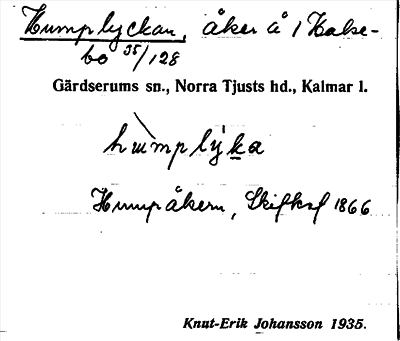 Humplyckan, åker å 1 Halse-
bo 35/128
Gärdserums sn., Norra Tjusts hd., Kalmar l.
hùmplýka
Humpåkern, Skifksf 1866
Knut-Erik Johansson 1935.